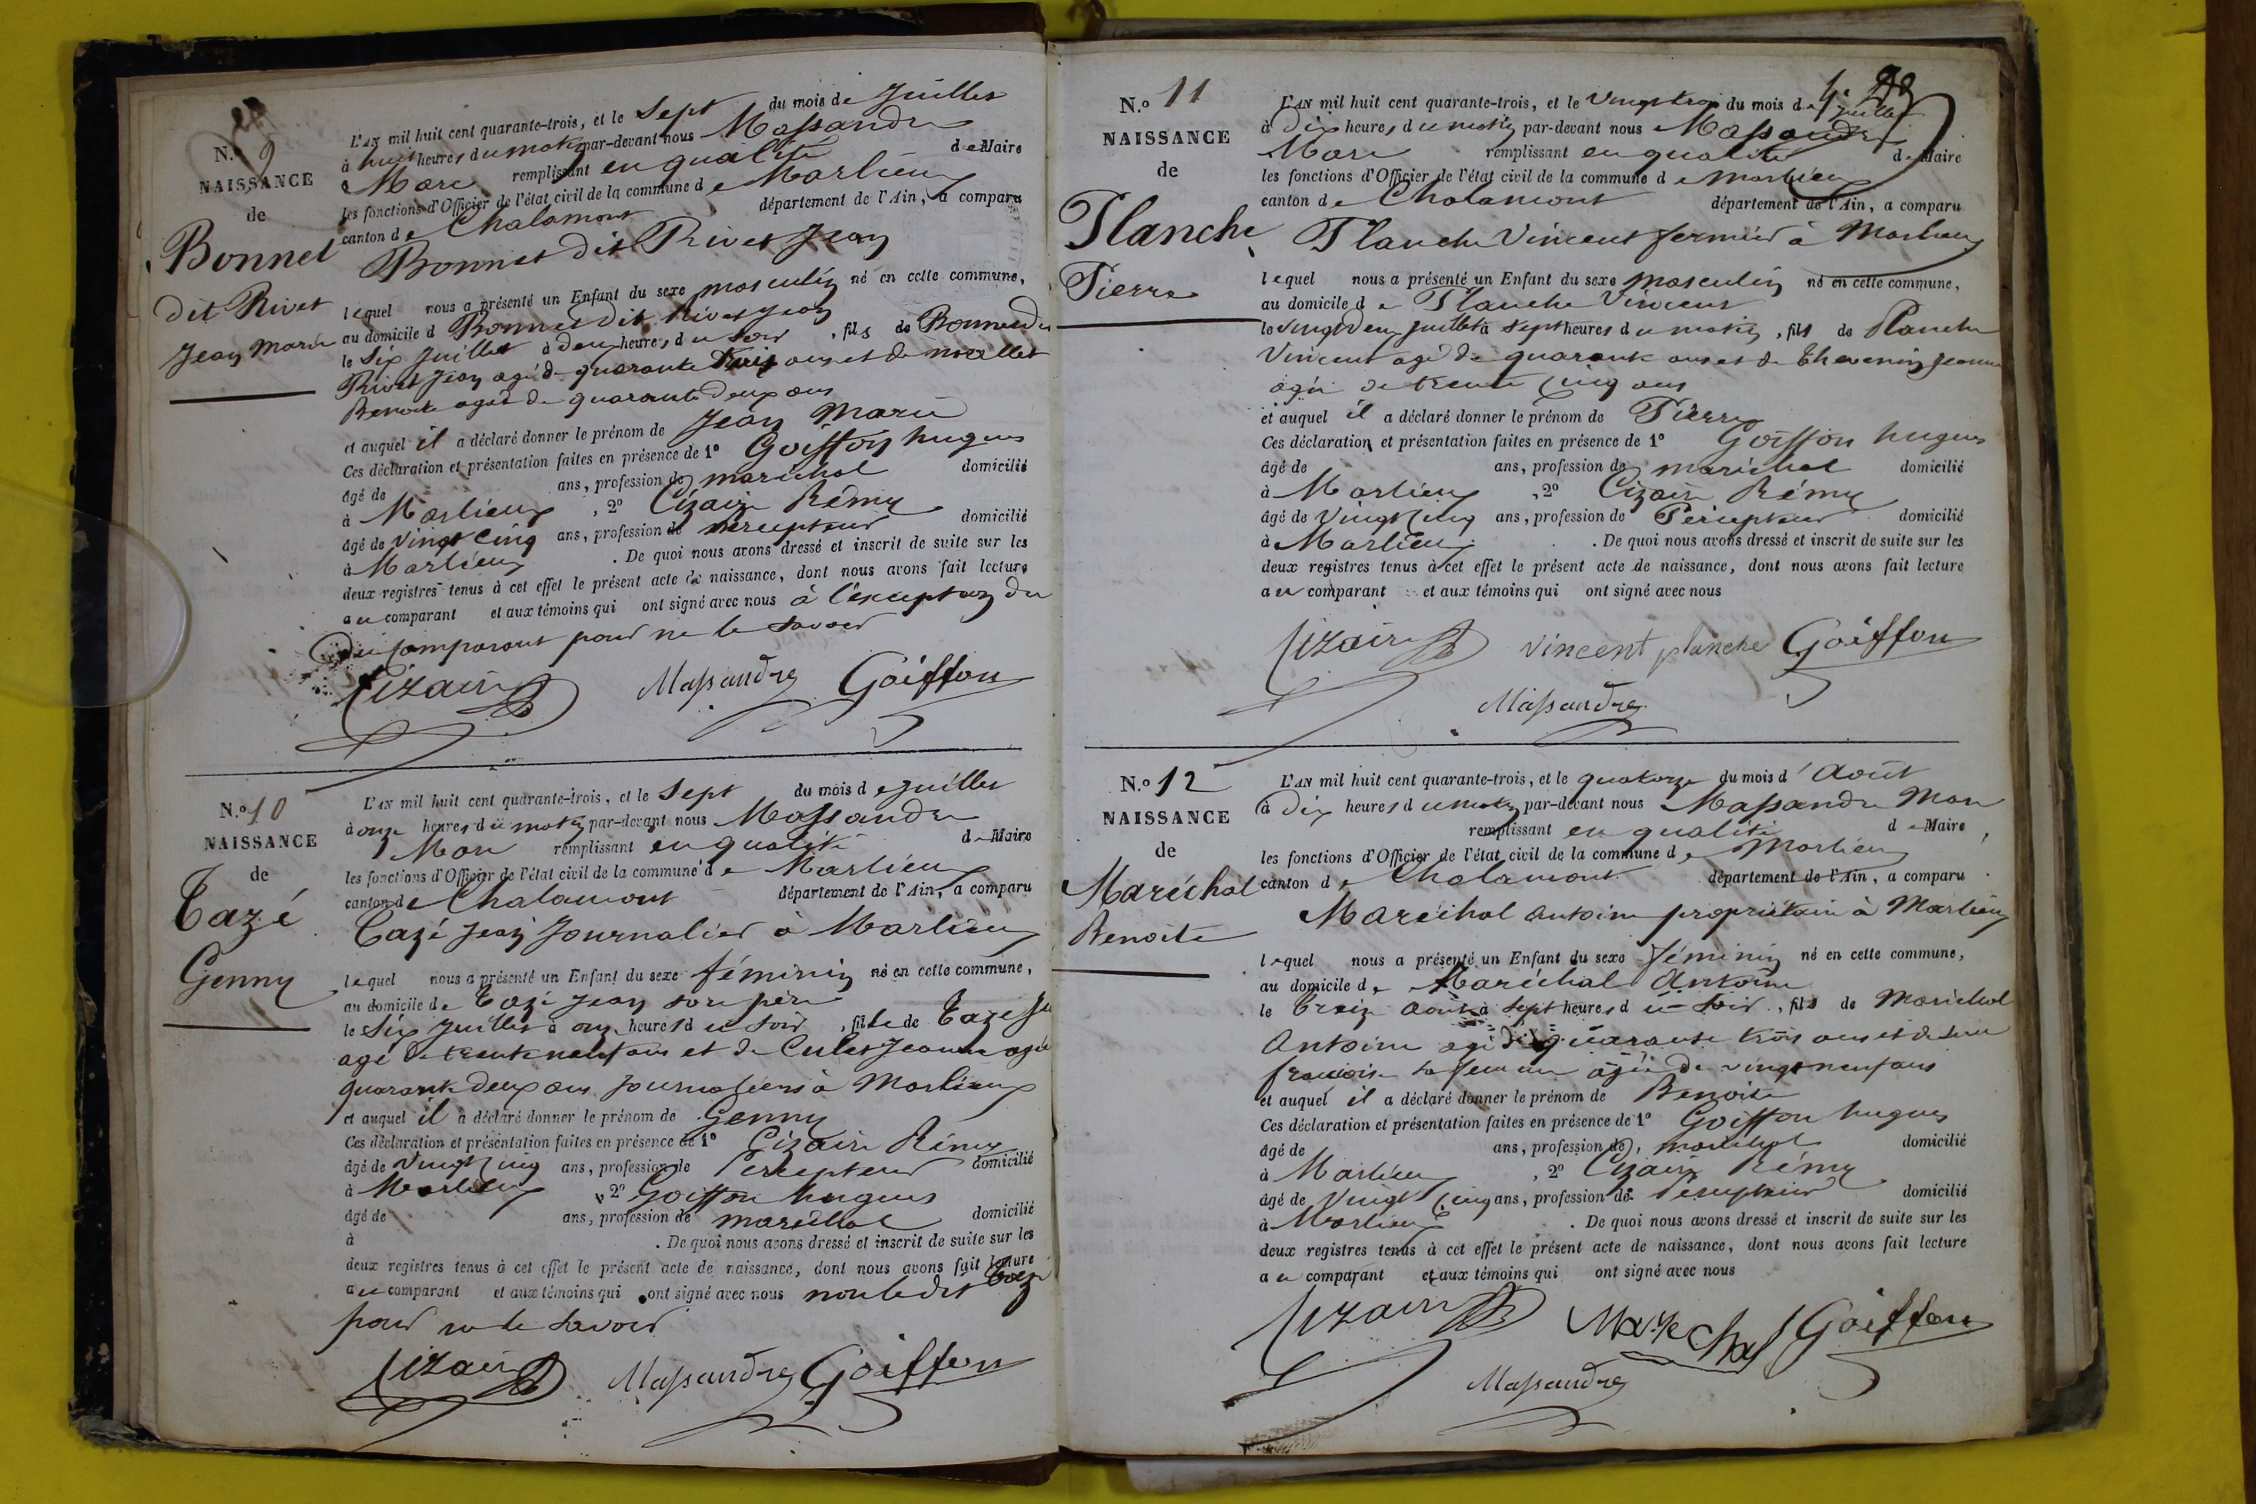 N.o 9
NAISSANCE
de
Bonnet
dit Rivet
Jean Marie
L'AN mil huit cent quarante-trois, et le Sept du mois de Juillet
à huit heures du matin par-devant nous Massandre
Marc remplissant en qualité de Maire
les fonctions d'Officier de l'état civil de la commune de Marlieux
canton de Chalamont département de l'Ain, a comparu
Bonnet dit Rivet Jean
lequel nous a présenté un Enfant du sexe masculin né en cette commune,
au domicile d Bonnet dit Rivet Jean
le Six Juillet à deux heures du soir, fils de Bonnet dit
Rivet Jean agé de quarante trois ans et de
Benoite agée de quarante deux ans
et auquel il a déclaré donner le prénom de Jean Marie
Ces déclaration et présentation faites en présence de 1° Goiffon hugues
âgé de ans, profession de maréchal domicilié
à Marlieux, 2° Cizain Rémy
âgé de vingt cinq ans, profession de percepteur domicilié
à Marlieux. De quoi nous avons dressé et inscrit de suite sur les
deux registres tenus à cet effet le présent acte de naissance, dont nous avons fait lecture
au comparant et aux témoins qui ont signé avec nous à l'exception du
du comparant pour ne le savoir
Cizain Massandre Goiffon
N.o 10
NAISSANCE
de
Cazé
Genny
L'AN mil huit cent quarante-trois, et le Sept du mois de Juillet
à onze heures du matin par-devant nous Massandre
Marc remplissant en qualité de Maire
les fonctions d'Officier de l'état civil de la commune de Marlieux
canton de Chalamont département de l'Ain, a comparu
Cazé Jean Journalier à Marlieux
lequel nous a présenté un Enfant du sexe féminin né en cette commune,
au domicile de Cazé Jean son père
le Six Juillet à onze heures du soir, fille de Cazé
agé de trente neuf ans et de Culet Jeanne agée
quarante deux ans Journaliers à Marlieux
et auquel il a déclaré donner le prénom de Genny
Ces déclaration et présentation faites en présence de 1° Cizain Rémy
âgé de vingt cinq ans, profession de Percepteur domicilié
à Marlieux, 2° Goiffon hugues
âgé de ans, profession de maréchal domicilié
à . De quoi nous avons dressé et inscrit de suite sur les
deux registres tenus à cet effet le présent acte de naissance, dont nous avons fait lecture
au comparant et aux témoins qui ont signé avec nous non ledit Cazé
pour ne le savoir
Cizain Massandre Goiffon
N.o 11
NAISSANCE
de
Planche
Pierre
L'AN mil huit cent quarante-trois, et le Vingt trois du mois de Juillet
à dix heures du matin par-devant nous Massandre
Marc remplissant en qualité de Maire
les fonctions d'Officier de l'état civil de la commune de Marlieux
canton de Chalamont département de l'Ain, a comparu
Planche Vincent fermier à Marlieux
lequel nous a présenté un Enfant du sexe masculin né en cette commune,
au domicile de Planche Vincent
le vingt deux Juillet à sept heures du matin, fils de Planche
Vincent agé de quarante ans et de Thevenin Jeanne
agée de trente cinq ans
et auquel il a déclaré donner le prénom de Pierre
Ces déclaration et présentation faites en présence de 1° Goiffon hugues
âgé de ans, profession de maréchal domicilié
à Marlieux, 2° Cizain Rémy
âgé de vingt cinq ans, profession de Percepteur domicilié
à Marlieux. De quoi nous avons dressé et inscrit de suite sur les
deux registres tenus à cet effet le présent acte de naissance, dont nous avons fait lecture
au comparant et aux témoins qui ont signé avec nous
Cizain vincent planche Goiffon
Massandre
N.o 12
NAISSANCE
de
Maréchal
Benoite
L'AN mil huit cent quarante-trois, et le quatorze du mois d'Août
à dix heures du matin par-devant nous Massandre Marc
remplissant en qualité de Maire
les fonctions d'Officier de l'état civil de la commune de Marlieux
canton de Chalamont département de l'Ain, a comparu
Maréchal Antoine propriétaire à Marlieux
lequel nous a présenté un Enfant du sexe féminin né en cette commune,
au domicile de Maréchal Antoine
le treize août à sept heures du soir, fils de Maréchal
Antoine agé de quarante trois ans et de
françoise sa femme agée de vingt neuf ans
et auquel il a déclaré donner le prénom de Benoite
Ces déclaration et présentation faites en présence de 1° Goiffon hugues
âgé de ans, profession de maréchal domicilié
à Marlieux, 2° Cizain Rémy
âgé de vingt cinq ans, profession de Percepteur domicilié
à Marlieux. De quoi nous avons dressé et inscrit de suite sur les
deux registres tenus à cet effet le présent acte de naissance, dont nous avons fait lecture
au comparant et aux témoins qui ont signé avec nous
Cizain Marechal Goiffon
Massandre